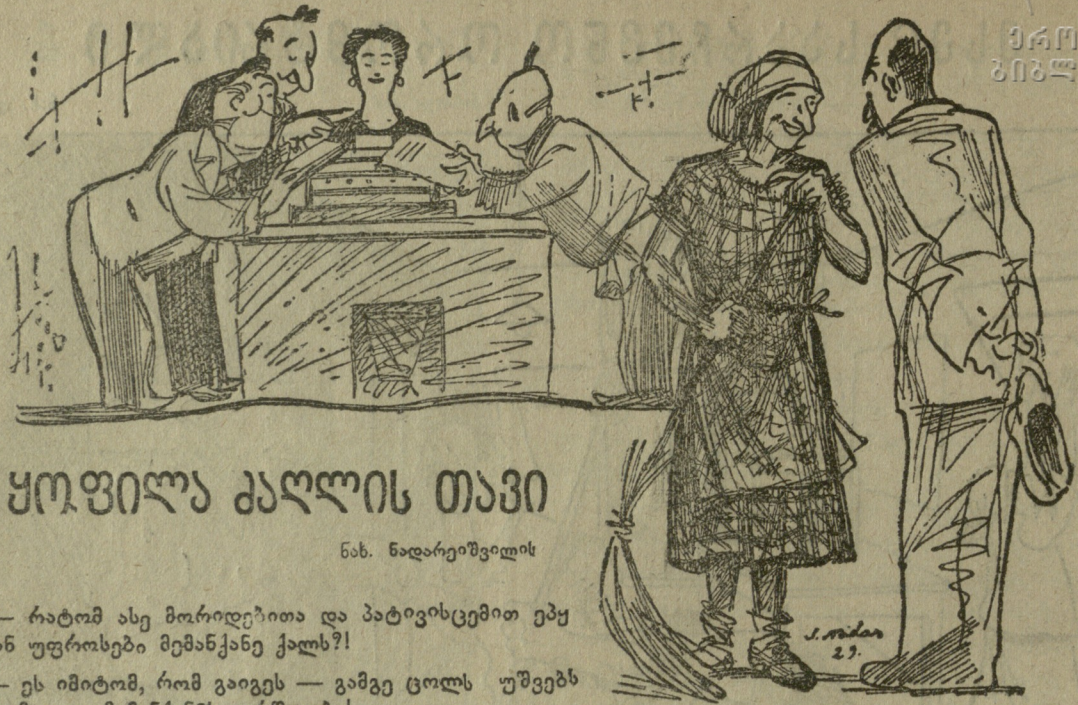 ერო
ბიბლ
ყოფილა ძაღლის თავი
ნახ. ნადარეიშვილის
— რატომ ასე მორიდებითა და პატივისცემით ეპყ
ან უფროსები მემანქანე ქალს?!
— ეს იმიტომ, რომ გაიგეს — გამგე ცოლს უშვებს
29.